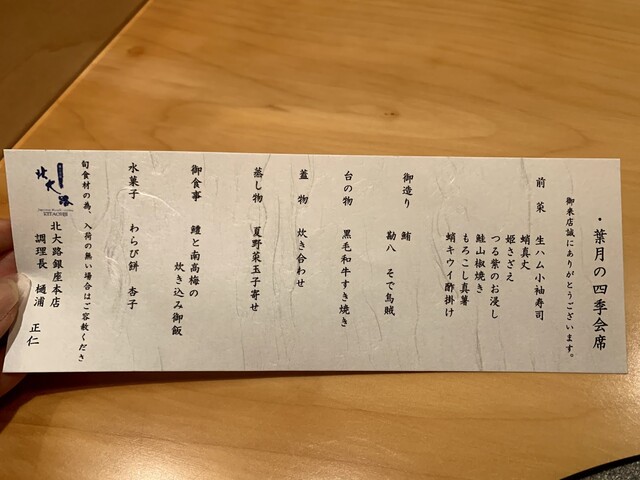 ・葉月の四季会席
御来店誠にありがとうございます。
前菜 生ハム小袖寿司
蛸真丈
姫さざえ
つる紫のお浸し
鮭山椒焼き
もろこし真薯
蛸キウイ酢掛け
御造り 鮪
勘八 そで烏賊
台の物 黒毛和牛すき焼き
蓋物 炊き合わせ
蒸し物 夏野菜玉子寄せ
御食事 鱧と南高梅の
炊き込み御飯
水菓子 わらび餅 杏子
旬食材の為、入荷の無い場合はご容赦くださ
北大路銀座本店
調理長 樋浦 正仁
北大路
KITAOHJI